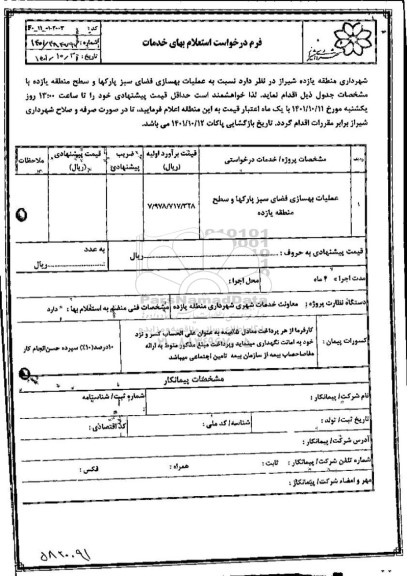 فرم درخواست استعلام بهای خدمات
کد:
شماره:
تاریخ:
شهرداری منطقه یازده شیراز در نظر دارد نسبت به عملیات بهسازی فضای سبز پارکها و سطح منطقه یازده با
مشخصات جدول ذیل اقدام نماید. لذا خواهشمند است حداقل قیمت پیشنهادی خود را تا ساعت ۱۳:۰۰ روز
یکشنبه مورخ ۱۴۰۱/۱۰/۱۱ با یک ماه اعتبار قیمت به این منطقه اعلام فرمایید، تا در صورت صرفه و صلاح شهرداری
شیراز برابر مقررات اقدام گردد. تاریخ بازگشایی پاکات ۱۴۰۱/۱۰/۱۲ می باشد.
ردیف مشخصات پروژه/ خدمات درخواستی قیمت برآورد اولیه (ریال) ضریب پیشنهادی قیمت پیشنهادی (ریال) ملاحظات
۱ عملیات بهسازی فضای سبز پارکها و سطح منطقه یازده ۷/۹۷۸/۷۱۷/۳۲۸
قیمت پیشنهادی به حروف : ریال به عدد ریال
مدت اجرا : ۴ ماه محل اجرا :
دستگاه نظارت پروژه : معاونت خدمات شهری شهرداری منطقه یازده مشخصات فنی منضم به استعلام بها : دارد
کسورات پیمان : کارفرما از هر پرداخت معادل ضمیمه به عنوان علی الحساب کسر و نزد ۱۰درصد(۱۰٪) سپرده حسن انجام کار
خود به امانت نگهداری مینماید وپرداخت مبلغ مذکور منوط به ارائه
مفاصاحساب بیمه از سازمان بیمه تامین اجتماعی میباشد
مشخصات پیمانکار
نام شرکت/ پیمانکار : شماره ثبت/ شناسنامه :
تاریخ ثبت/ تولد : شناسه/ کد ملی : کد اقتصادی :
آدرس شرکت/ پیمانکار :
شماره تلفن شرکت/ پیمانکار : ثابت : همراه : فکس :
مهر و امضاء شرکت/ پیمانکار :
ParsNamadData
۵۸۲۰۰۹۱